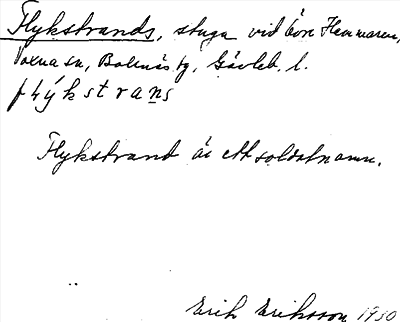 Flykstrands, stuga vid övre Hemmaren,
Voxna sn, Bollnäs tg, Gävleb. l.
flýkstrans
Flykstrand är ett soldatnamn.
Erik Eriksson 1930